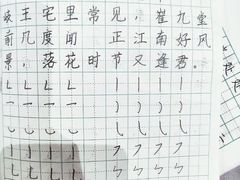 岐王宅里常见，崔九堂
前几度闻 正江南好风
景，落花时节又逢君。